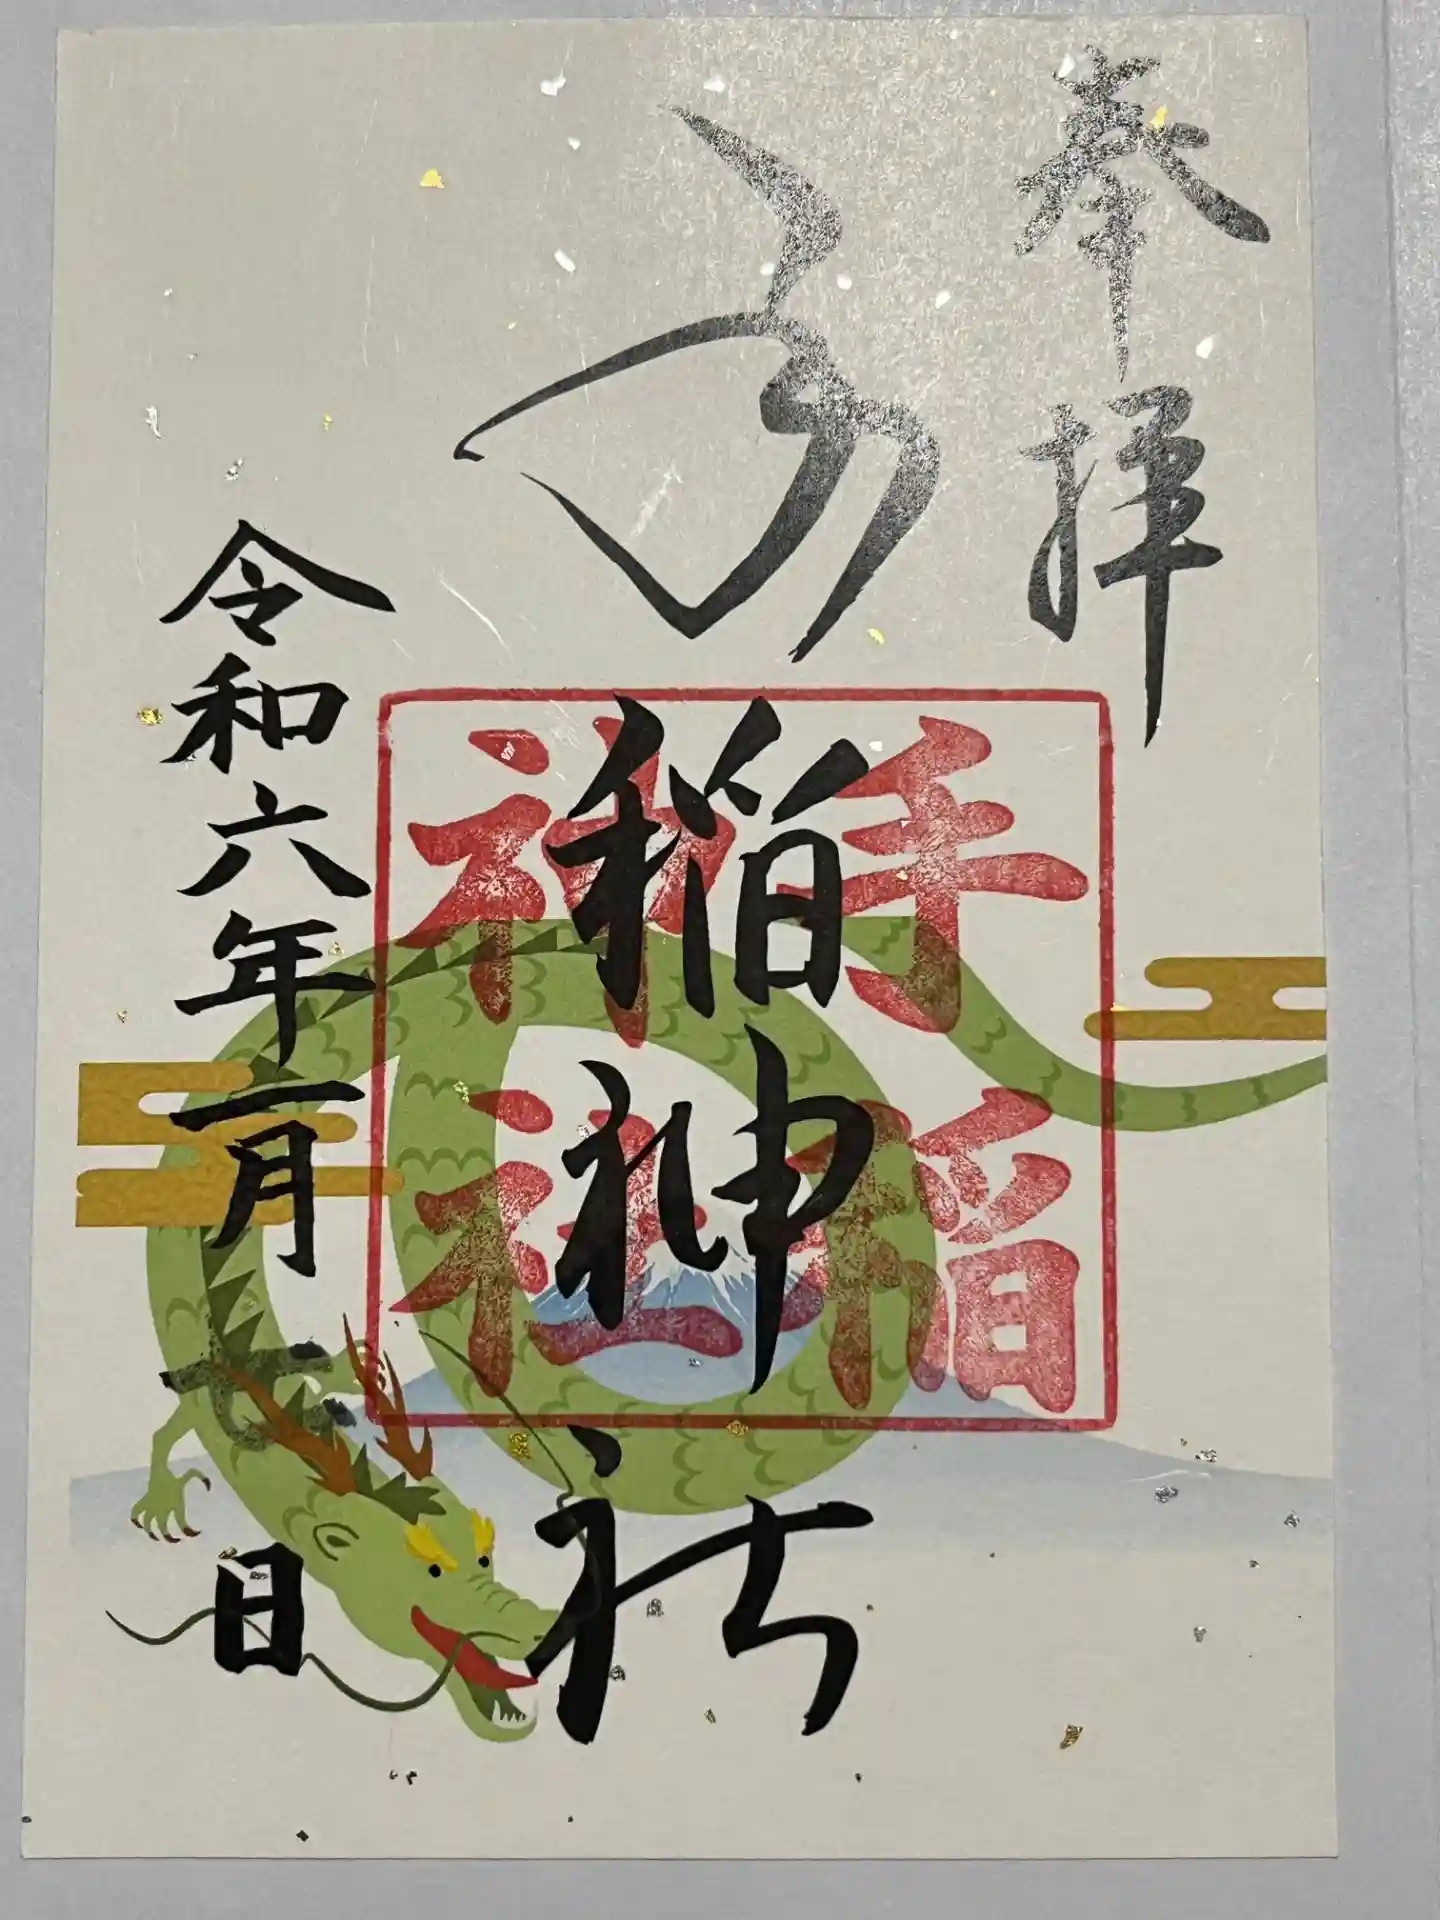 奉拝
手稲神社
手稲
神社
令和六年一月七日